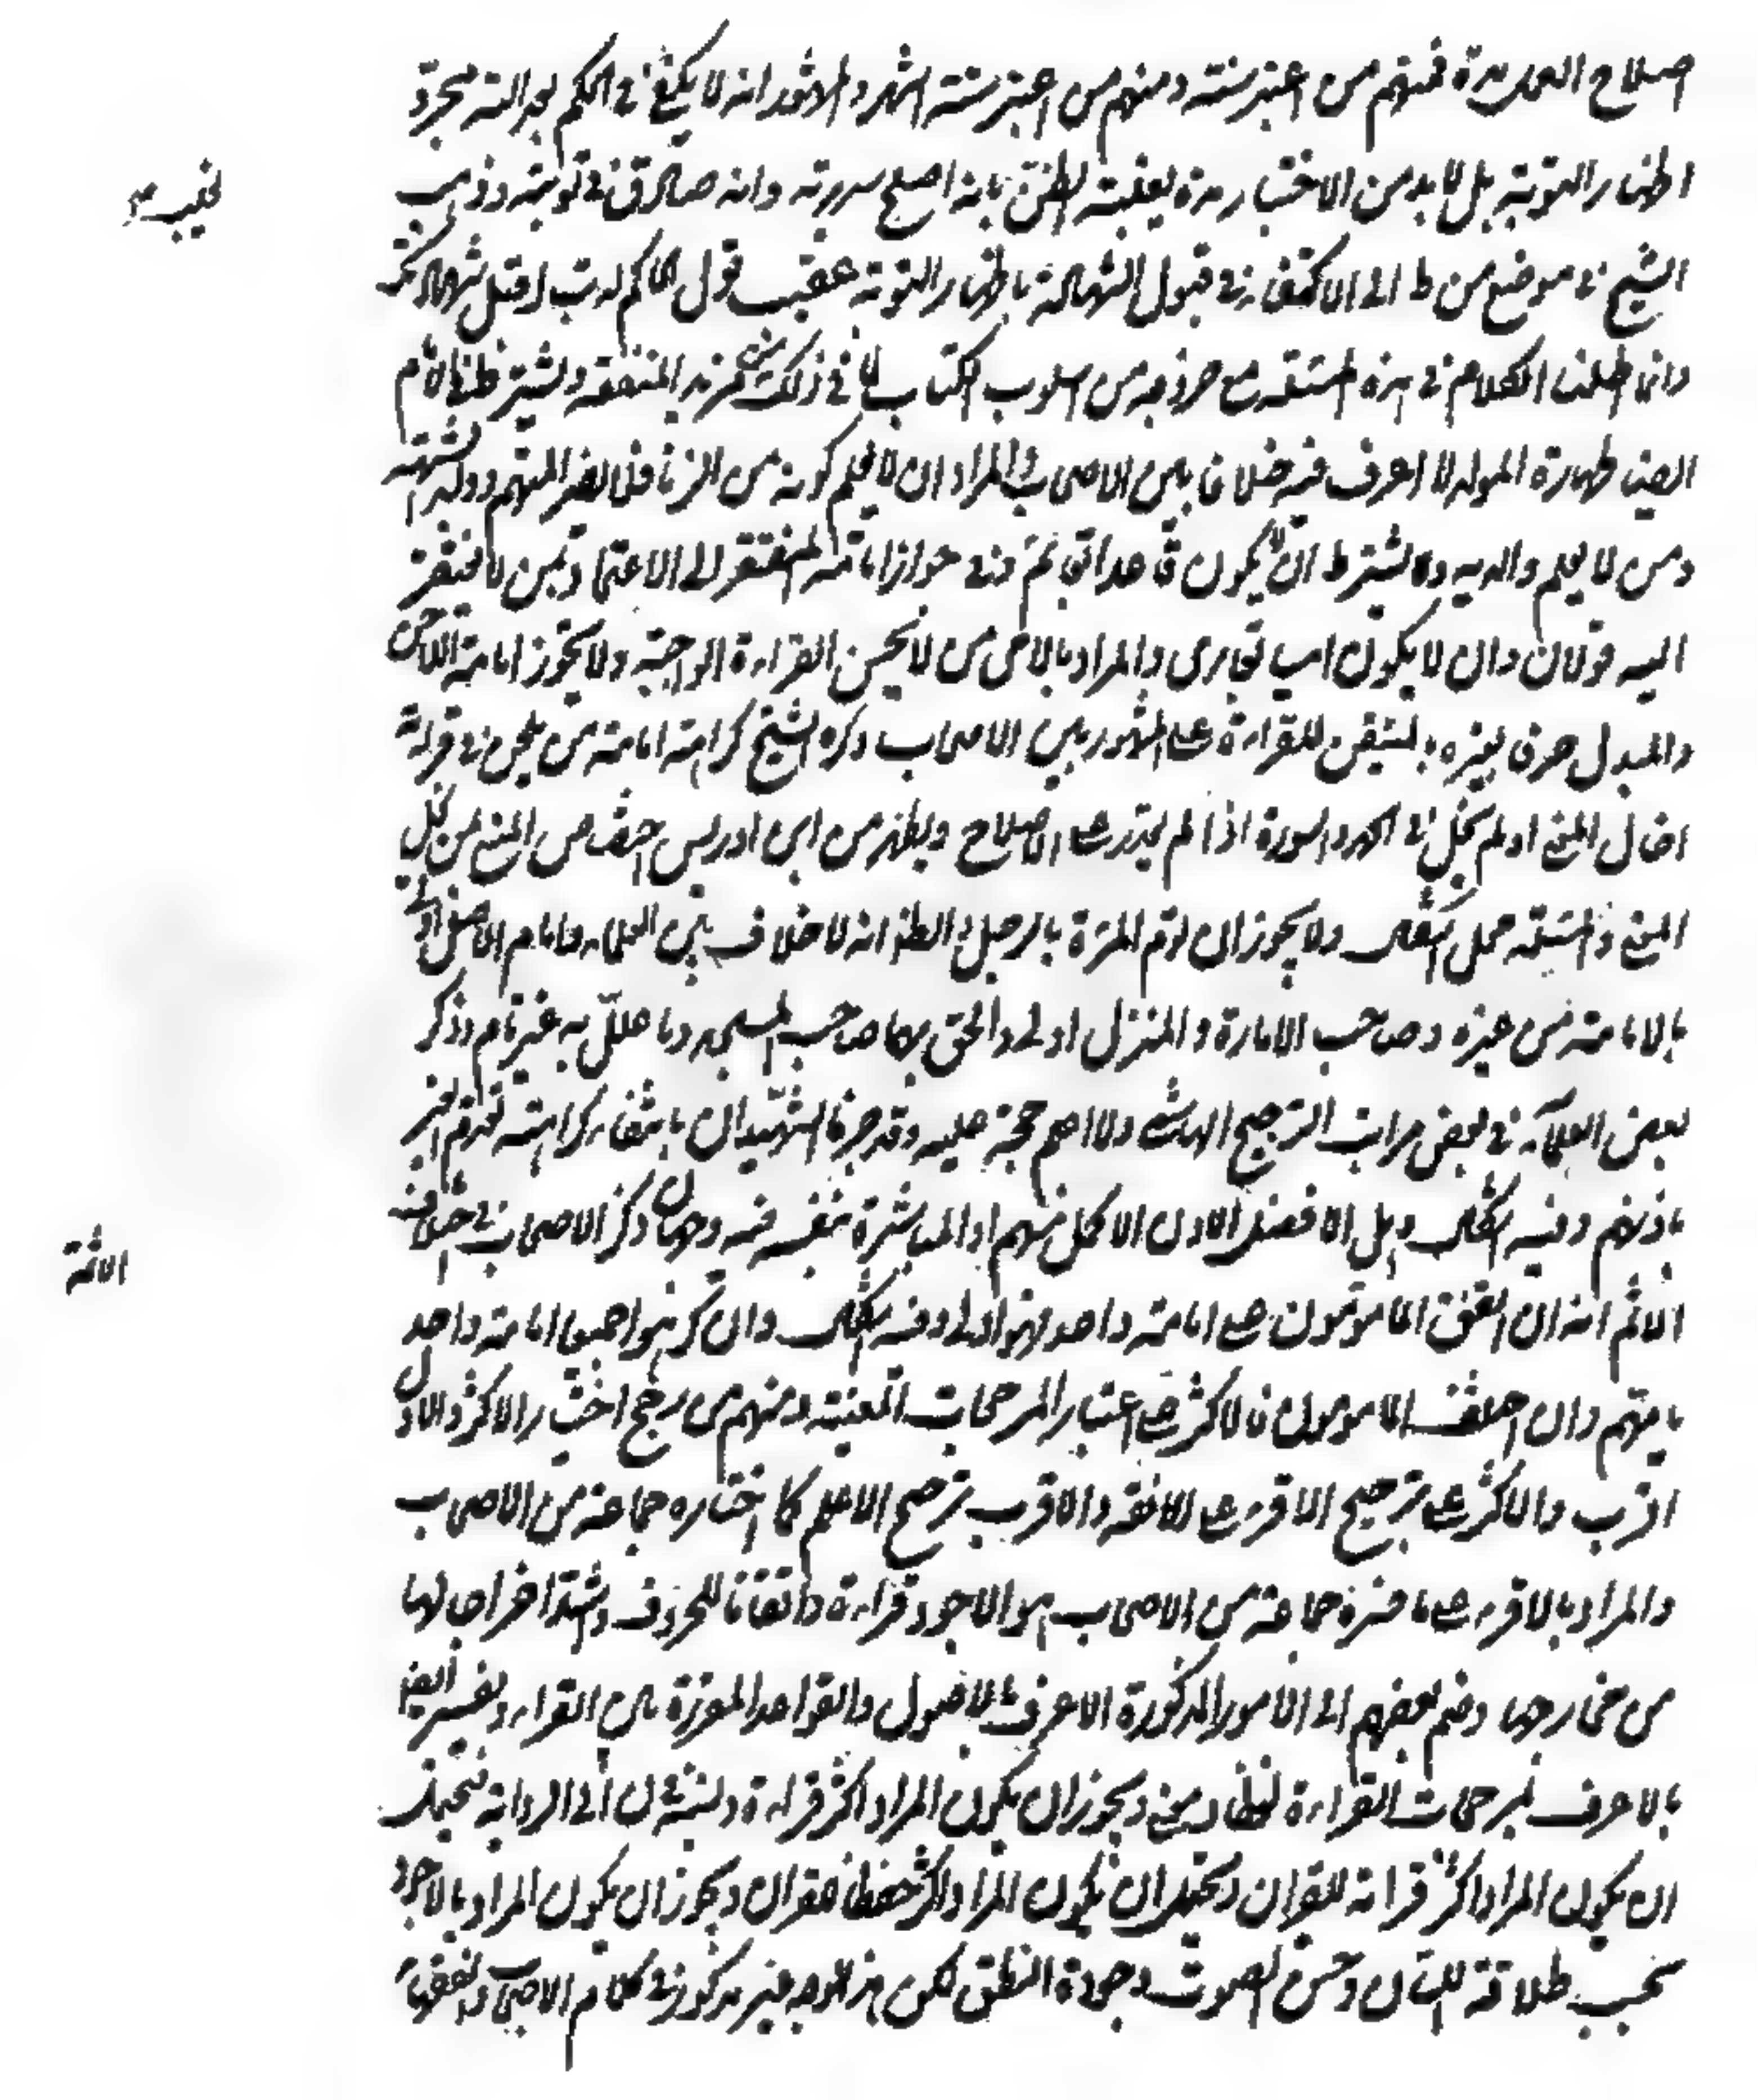 اصلاح العمل مدة فمنهم من اعتبر سنته ومنهم من اعتبر ستة اشهر والاشهر انه لا يكفي في الحكم بعدالته مجرد
اظهار التوبة بل لا بد من الاختبار مدة يغلب الظن بانه اصلح سريرته وانه صادق في توبته وذهب
الشيخ في موضع من ط الى الاكتفاء في قبول الشهادة باظهار التوبة عقيب قول الحاكم له تب اقبل شهادتك
وانما اطلنا الكلام في هذه المسئلة مع خروجه من اسلوب الكتاب لما في ذلك من مزيد المنفعة ويشترط في الامام
ايضا طهارة المولد لا اعرف فيه خلافا بين الاصحاب والمراد ان لا يعلم كونه من الزنا فلا يضر المتهم وولد الشبهة
ومن لا يعلم والديه ويشترط ان لا يكون قاعدا بقائم وفي جواز امامة المفتقر الى الاعتماد بمن لا يفتقر
اليه قولان وان لا يكون اميا بقارئ والمراد بالامي من لا يحسن القراءة الواجبة ولا يجوز امامة اللاحن
والمبدل حرفا بغيره بالمتقن للقراءة على المشهور بين الاصحاب وكره الشيخ كراهة امامة من يلحن في قراءته
احال المعنى او لم يحل في الحمد والسورة اذا لم يقدر على الاصلاح ويظهر من ابن ادريس اختصاص المنع بمن يحيل
المعنى والمسئلة محل اشكال ولا يجوز ان تؤم المرءة بالرجل والظ انه لا خلاف بين العلماء وامام الاصل اولى
بالامامة من غيره وصاحب الامارة والمنزل اولى والحق بهما صاحب المسجد وما علل به غير تام وذكر
بعض العلماء في بعض مراتب الترجيح الهاشمي ولا اعلم حجة عليه وقد صرحا الشهيدان بانتفاء كراهة تقدم الغير
باذنهم وفيه اشكال وهل الافضل الاذن الاكمل منهم او المباشرة بنفسه فيه وجهان وذكر الاصحاب في اختلاف
الائمة انه ان اتفق المامومون على امامة واحد فهو اولى وفيه اشكال وان كرهوا جميعا امامة واحد
لم يامهم وان اختلف المامومون فالاكثر على اعتبار المرجحات المعينة ومنهم من رجح اختيار الاكثر والاول
اقرب والاكثر على ترجيح الاقرء على الافقه والاقرب ترجيح الاعلم كما اختاره جماعة من الاصحاب
والمراد بالاقرء على ما فسره جماعة من الاصحاب هو الاجود قراءة واتقانا للحروف واشد اخراجا لها
من مخارجها وضم بعضهم الى الامور المذكورة الاعرف بالاصول والقواعد المقررة بين القراء وفسر ايضا
بالاعرف بمرجحات القراءة لفظا ومعنى ويجوز ان يكون المراد اكثر قراءة الى الرواية فيحتمل
ان يكون المراد اكثر قراءة للقران ويحتمل ان يكون المراد اكثر حفظا للقران ويجوز ان يكون المراد بالاجود
بحسب طلاقة اللسان وحسن الصوت وجودة النطق لكن هذا الوجه غير مذكور في كلام الاصحاب والفقهاء
الائمة